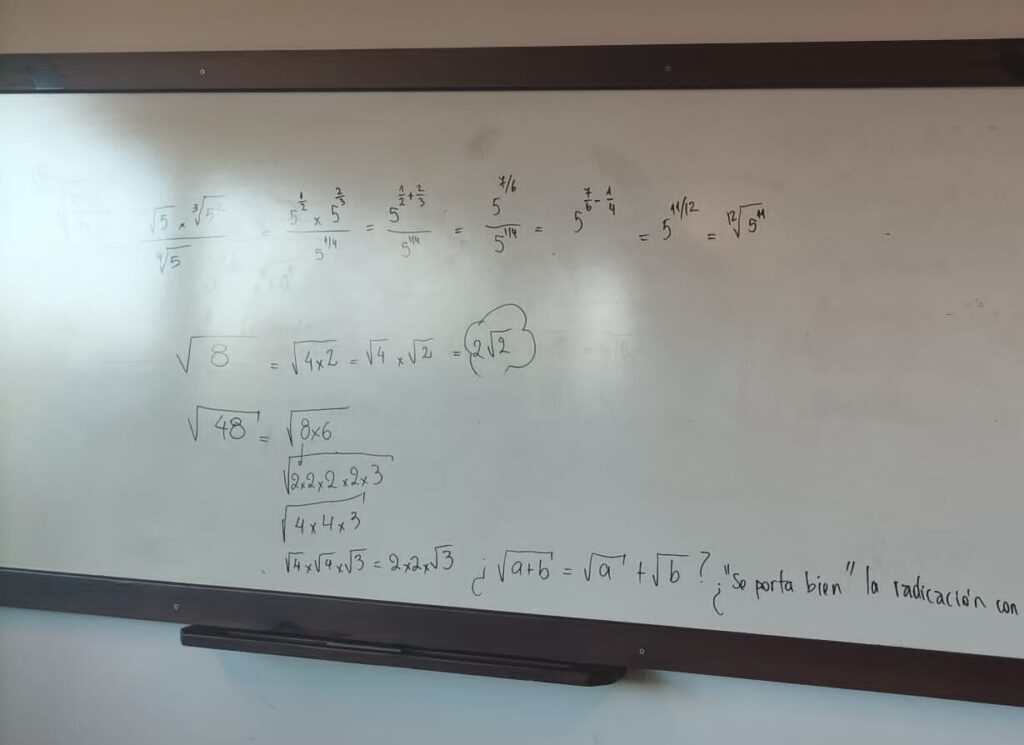 √5 × ³√5² / ⁴√5 = 5^(1/2) × 5^(2/3) / 5^(1/4) = 5^(1/2 + 2/3) / 5^(1/4) = 5^(7/6) / 5^(1/4) = 5^(7/6 - 1/4) = 5^(11/12) = ¹²√5¹¹
√8 = √(4×2) = √4 × √2 = 2√2
√48 = √(8×6)
√(2×2×2×2×3)
√(4×4×3)
√4×√4×√3 = 2×2×√3 ¿√(a+b) = √a + √b? ¿"Se porta bien" la radicación con